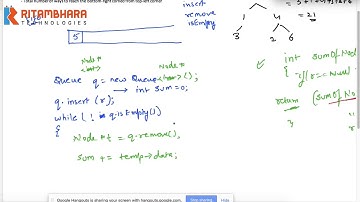 - Total number of ways to reach the bottom-right corner from top-left corner
RITAMBHARA
TECHNOLOGIES
insert
remove
isEmpty
5
1 4
3 2 6
= 21
Node *
Node *
Queue q = new Queue<Node>();
int Sum=0;
q.insert (r);
while ( ! q.isEmpty())
{
Node *t = q.remove();
Sum += temp→data;
int SumOfNod
if(r==Null
return (SumOf No
Google Hangouts is sharing your screen with hangouts.google.com.
Stop sharing
Hide